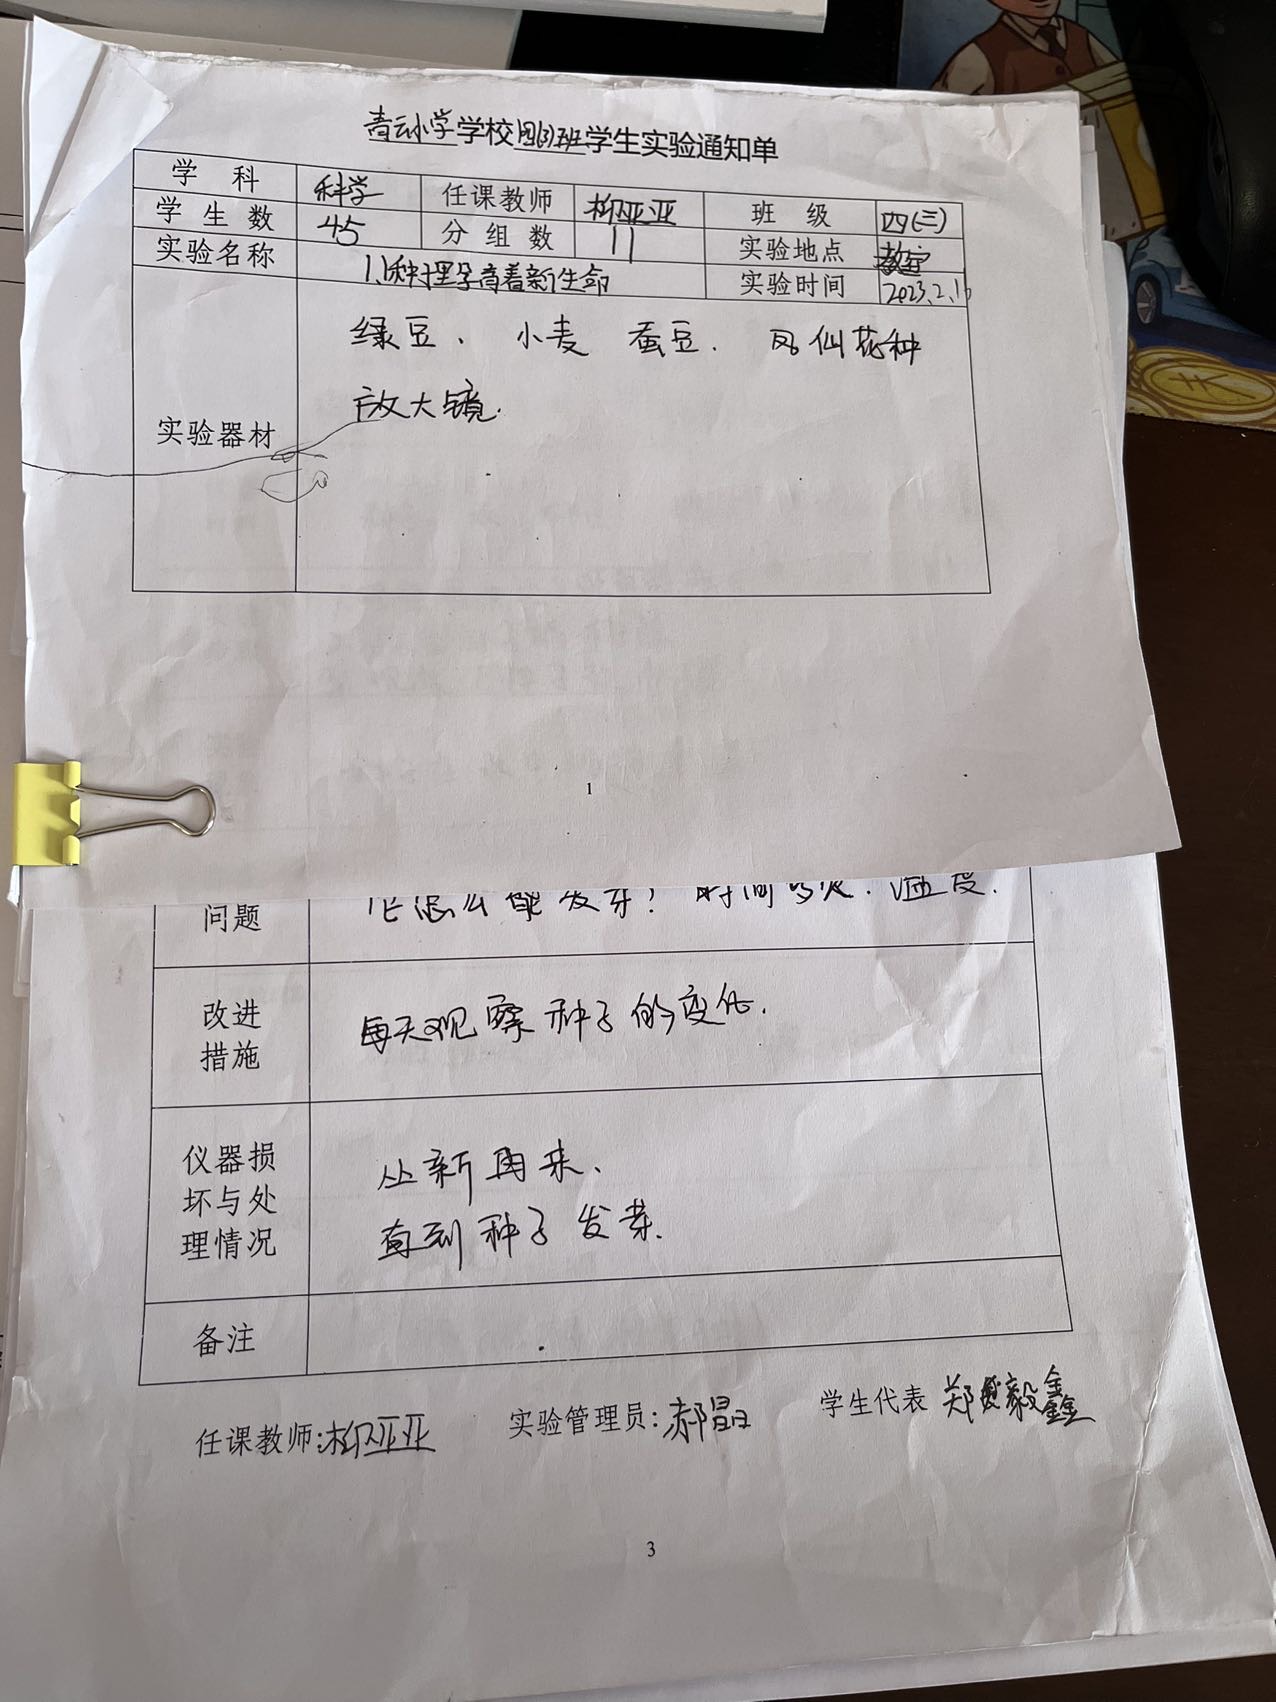 青云小学学校四(3)班学生实验通知单
学 科 科学 任课教师 柳亚亚 班 级 四(三)
学 生 数 45 分 组 数 11 实验地点 教室
实验名称 1.1种子里孕育着新生命 实验时间 2023.2.1
实验器材
绿豆、 小麦 蚕豆. 凤仙花种
放大镜.
1
问题 么能发芽? 时间 温度.
改进
措施
每天观察种子的变化.
仪器损
坏与处
理情况
从新再来、
直到种子发芽.
备注
任课教师:柳亚亚 实验管理员:郝晶 学生代表 郑毅鑫
3